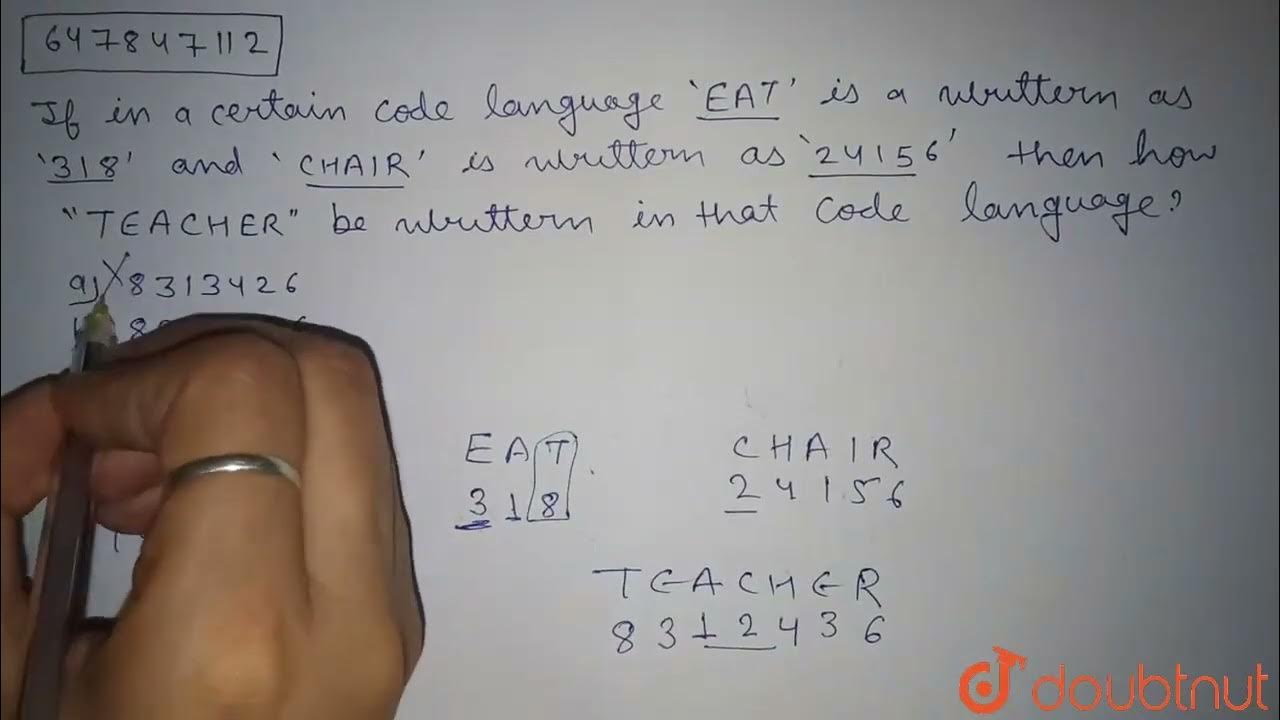 647847112
If in a certain code language 'EAT' is a writtern as
'318' and 'CHAIR' is writtern as '24156' then how
"TEACHER" be writtern in that code language?
a) 8313426
E A T
3 1 8
C H A I R
2 4 1 5 6
T E A C H E R
8 3 1 2 4 3 6
doubtnut